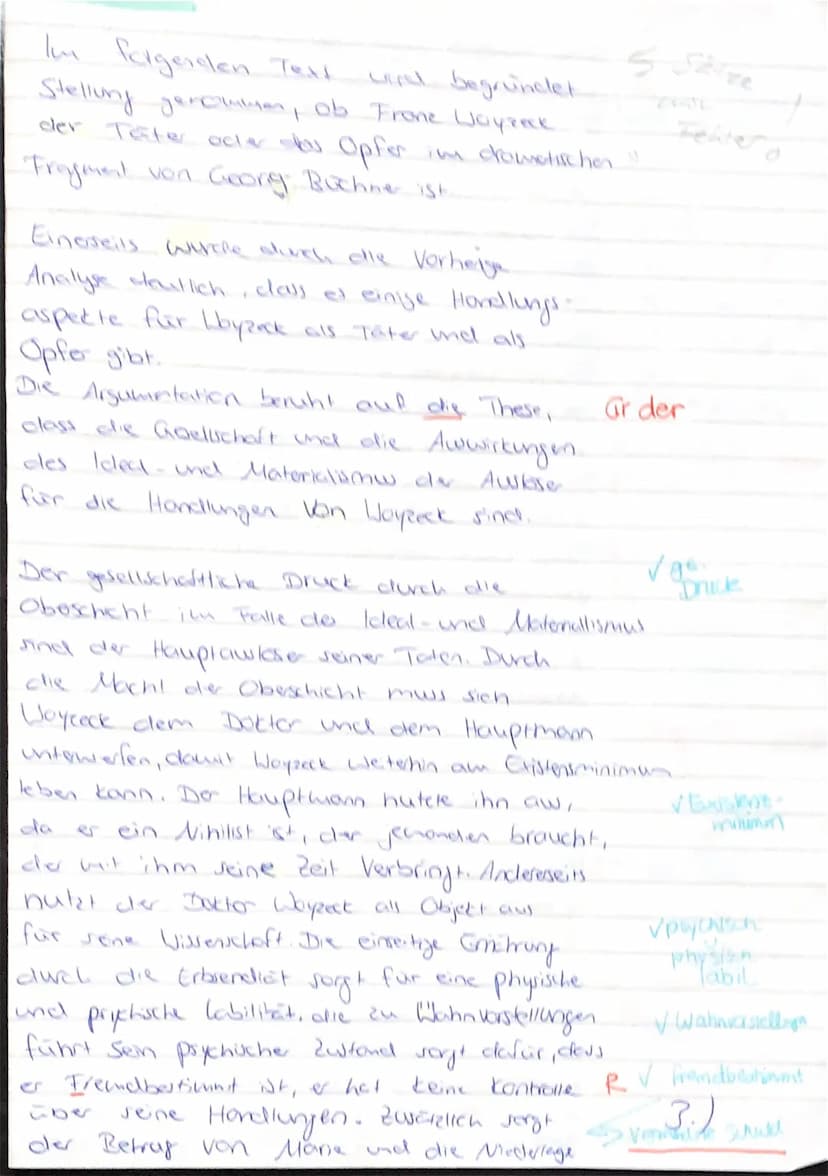 Im folgenden Text wird begründet
5 Sätze
Stellung genommen, ob Franz Woyzeck
der Täter oder das Opfer im dramatischen
Fragment von Georg Büchne ist.
Einerseits wurde durch die Vorherige
Analyse deutlich, dass es einige Handlungs-
aspekte für Woyzeck als Täter und als
Opfer gibt.
Die Argumentation beruht auf die These, Gr der
dass die Gesellschaft und die Auswirkungen
des Ideal- und Materialismus der Auslöser
für die Handlungen Von Woyzeck sind.
Der gesellschaftliche Druck durch die √ ge.
Druck
Obeschicht im Falle des Ideal- und Materialismus
sind der Hauptauslöser seiner Taten. Durch
die Macht der Obeschicht muss sich
Woyzeck dem Doktor und dem Hauptmann
unterwerfen, damit Woyzeck weiterhin am Existensminimum
leben kann. Der Hauptmann nutzte ihn aus, √ Existenz-
minimum
da er ein Nihilist ist, der jemanden braucht,
der mit ihm seine Zeit Verbringt. Andereseits
nutzt der Doktor Woyzeck als Objekt aus
für seine Wissenschaft. Die einseitige Ernährung √ psychisch
physisch
labil
durch die Erbsendiät sorgt für eine physische
und psychische Labilität, die zu Wahnvorstellungen √ Wahnvorstellungen
führt Sein psychischer Zustand sorgt dafür, dass
er Fremdbestimmt ist, er hat keine Kontrolle R √ fremdbestimmt
über seine Handlungen. Zusätzlich sorgt 3.)
der Betrug von Marie und die Niederlage